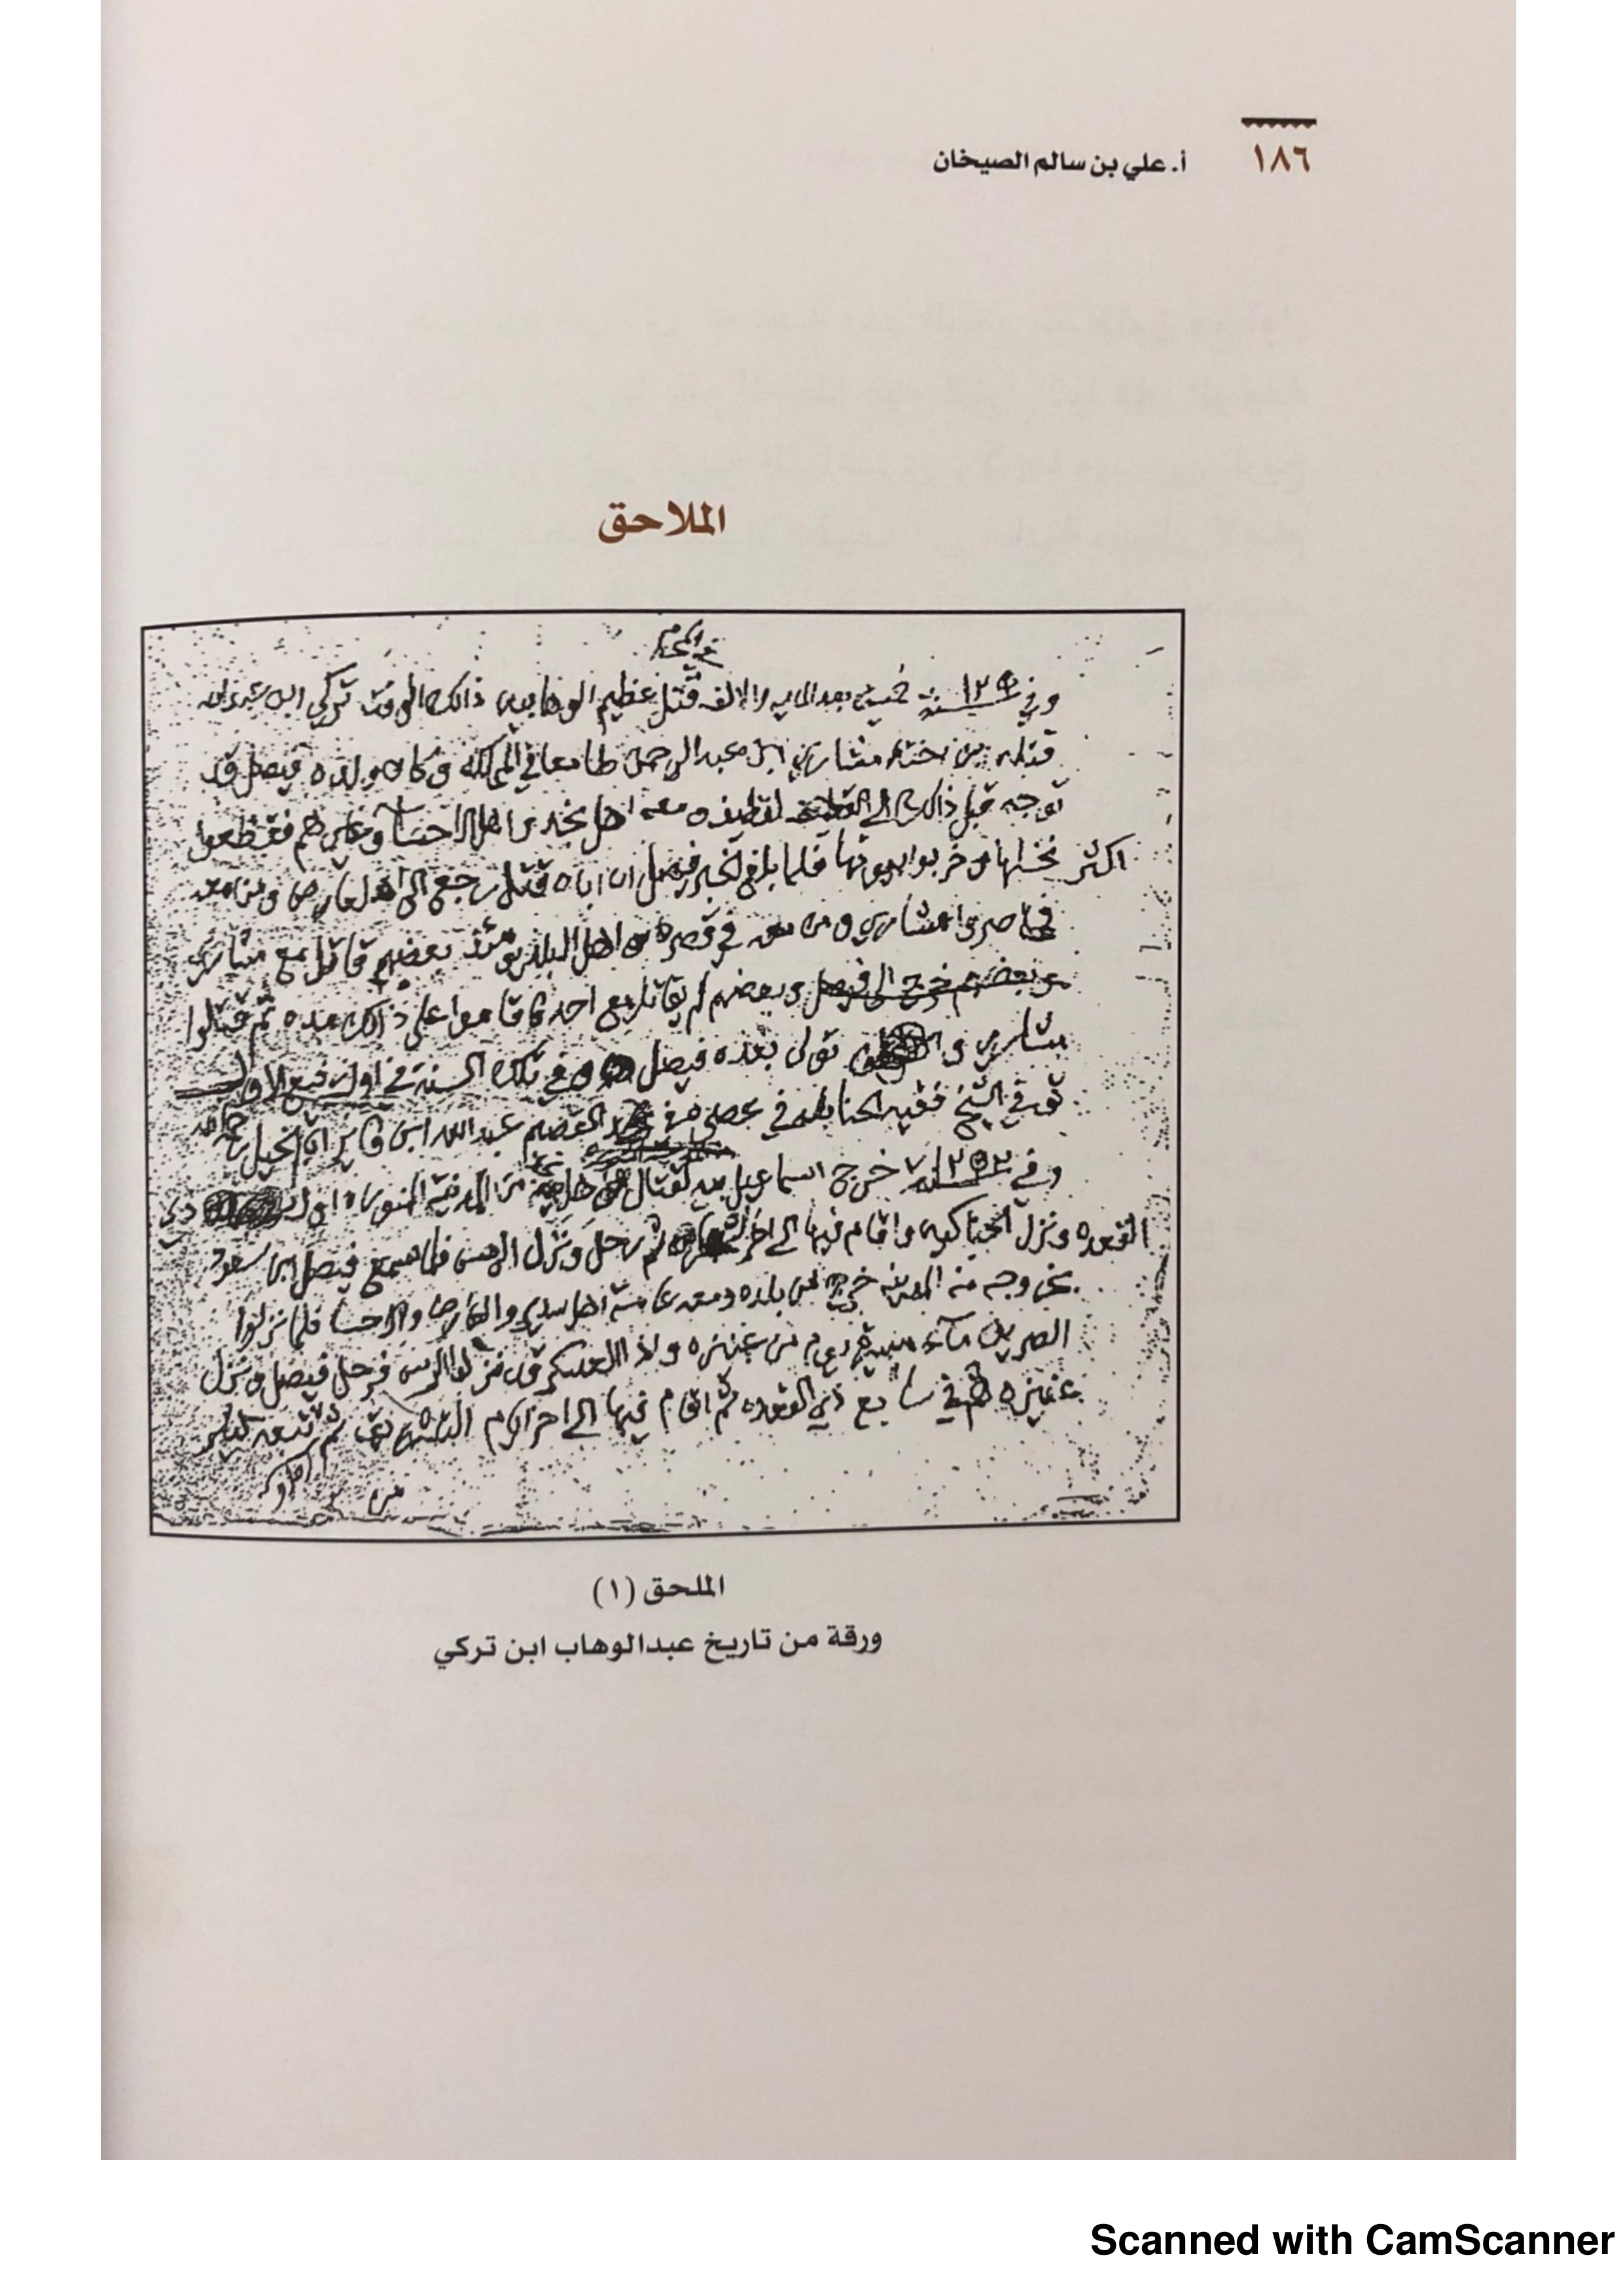 ١٨٦
أ. علي بن سالم الصيخان
الملاحق
في المحرم
وفي سنة ١٢٥٠ بعد المايه والالف قتل عظيم الوهابيين ذالك الوقت تركي ابن
قتله ابن اخته مشاري ابن عبد الرحمن طامعا في المملكة وكان ولده فيصل قد
توجه قبل ذالك الى لقطيف ومعه اهل نجد واهل الاحسا وغيرهم فقطعوا
اكثر نخلها وخربوا بيوتها فلما بلغ الخبر فيصل ان اباه قتل رجع الى العارض ومن معه
فحاصروا مشاري ومن معه في قصره واهل البلد يومئذ بعضهم قاتل مع مشاري
وبعضهم خرج الى فيصل وبعضهم لم يقاتل مع احد فاقاموا على ذالك مده ثم قتلوا
مشاري و تولى بعده فيصل وفي تلك السنة في اول ربيع الاول
توفي الشيخ فقيه الحنابله في عصره في القصيم عبد الله ابن فايز ابا الخيل رحمه الله
وفي سنة ١٢٥٢ خرج اسماعيل بيه لقتال اهل نجد من المدينة المنوره اول ذي
القعده ونزل الحناكيه واقام فيها الى اخر ثم رحل ونزل الرس فلما سمع فيصل ابن سعود
بخروجه من المدينه خرج من بلده ومعه اهل سدير والعارض والاحسا فلما نزلوا
الصريف ماء يوم من عنيزه واذ العسكر قد نزلوا الرس فرحل فيصل ونزل
عنيزه في سابع ذي القعده ثم اقام فيها الى اخر ثم
من
الملحق (١)
ورقة من تاريخ عبدالوهاب ابن تركي
Scanned with CamScanner